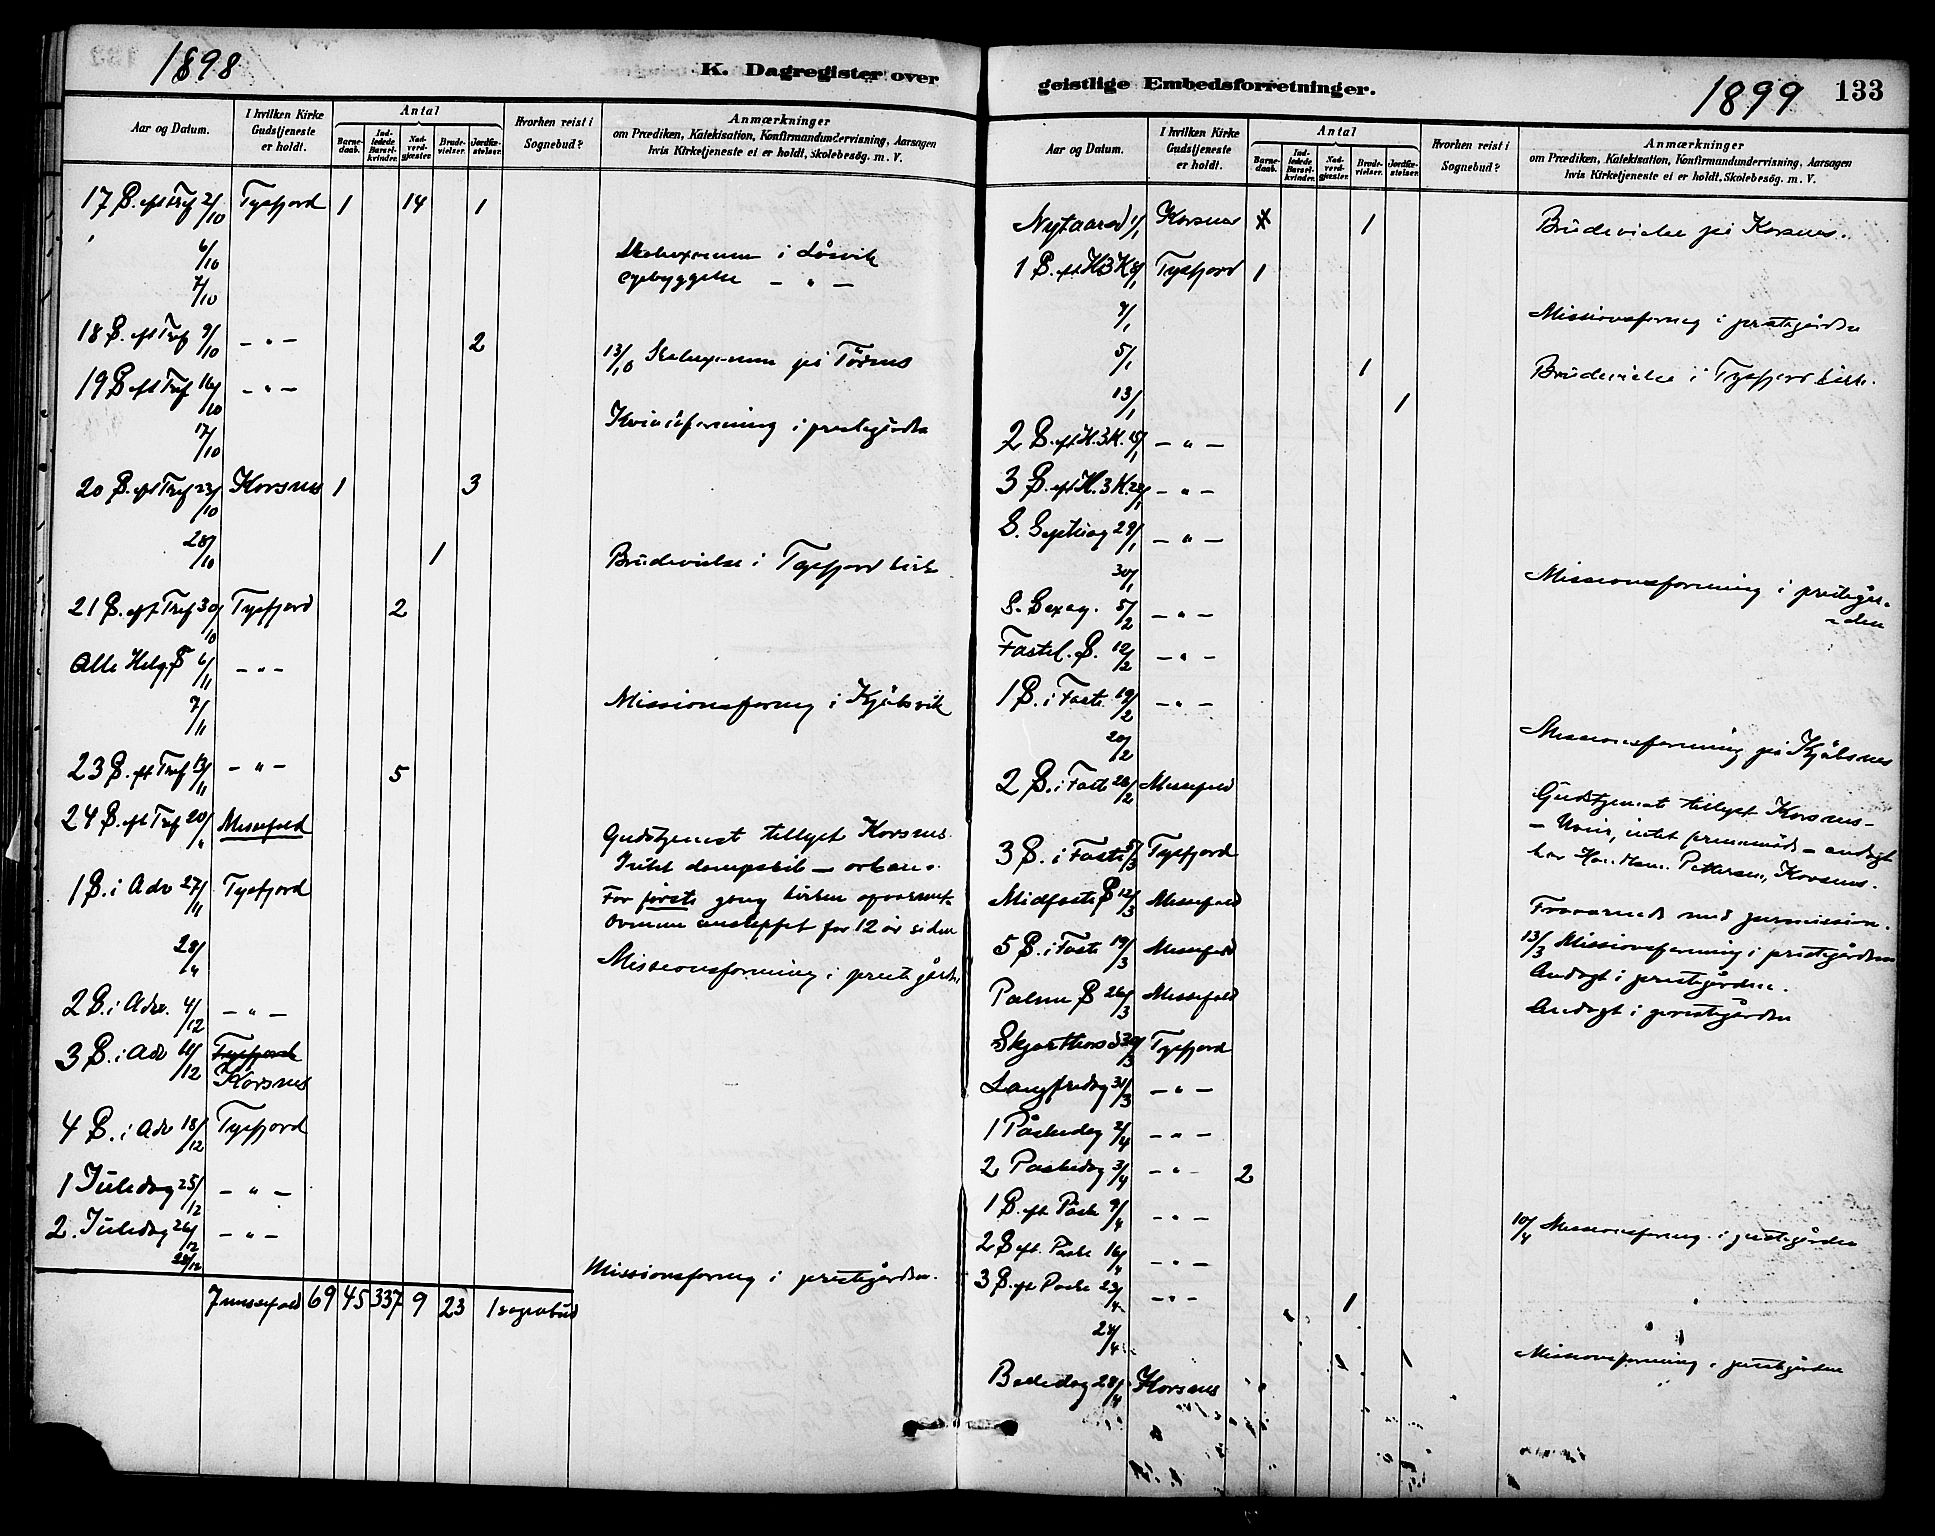 1898
K. Dagregister over
Aar og Datum.
I hvilken Kirke Gudstjeneste er holdt.
Antal
Barne-daab.
Ind-ledede Barsel-kvinder.
Nad-verd-gjæster.
Brude-vielser.
Jordfæ-stelser.
Hvorhen reist i Sognebud?
Anmærkninger
om Prædiken, Katekisation, Konfirmandundervisning, Aarsagen
hvis Kirketjeneste ei er holdt, Skolebesög. m. V.
17 S. eft Tref 2/10 Tysfjord 1 14 1
6/10 i Løsvik
7/10 — " —
18 S. eft Tref 9/10 — " — 2
13/10 på
19 S eft Tref 16/10 — " —
17/10 Kvindeforening i prestegården
20 S. eft Tref 23/10 Korsnes 1 3
28/10 1 Brudevielse i Tysfjord kirke
21 S. eft Tref 30/10 Tysfjord 2
Alle Helg. S 6/11 — " —
7/11 Missionsforng i Kjøbsvik
23 S. eft Tref 13/11 — " — 5
24 S. eft Tref 20/11 Messefald Gudstjenest tillyst Korsnes
Intet dampskib — orkan.
1 S. i Adv 27/11 Tysfjord For første gang kirken opvarmet.
Ovnene for 12 år siden
28/11 Missionsforening i prestegården
2 S. i Adv. 4/12 — " —
3 S. i Adv 11/12 Tysfjord
Korsnes
4 S. i Adv 18/12 Tysfjord
1 Juledag 25/12 — " —
2. Juledag 26/12 — " —
28/12 Missionsforeng i prestegården.
7 messefald 69 45 337 9 23 1 sognebud
geistlige Embedsforretninger.
1899
133
Aar og Datum.
I hvilken Kirke Gudstjeneste er holdt.
Antal
Barne-daab.
Ind-ledede Barsel-kvinder.
Nad-verd-gjæster.
Brude-vielser.
Jordfæ-stelser.
Hvorhen reist i Sognebud?
Anmærkninger
om Prædiken, Katekisation, Konfirmandundervisning, Aarsagen
hvis Kirketjeneste ei er holdt, Skolebesög. m. V.
Nytaarsd 1/1 Korsnes 1 Brudevielse på Korsnes.
1 S. eft H3K 8/1 Tysfjord 1
9/1 Missionsforeng i prestegården
5/1 1 Brudevielse i Tysfjord kirke.
13/1 1
2 S. eft H.3K. 15/1 — " —
3 S. eft H.3K. 22/1 — " —
S. Septuag 29/1 — " —
30/1 Missionsforening i prestegår-
den
S. Sexag. 5/2 — " —
Fastel. S. 12/2 — " —
1 S. i Faste 19/2 — " —
20/2 Missionsforening på Kjøbsnes
2 S. i Faste 26/2 Messefald Gudstjenest tillyst Korsnes —
— Uveir, intet fremmøde — andagt
3 S. i Faste 5/3 Tysfjord Pettersen, Korsnes.
Midfaste S 12/3 Messefald Fraværende med permission.
5 S. i Faste 19/3 Messefald 13/3 Missionsforening i prestegården
Andagt i prestegården.
Palme S 26/3 Messefald Andagt i prestegården
Skjærthorsd 30/3 Tysfjord
Langfredag 31/3 — " —
1 Påskedag 2/4 — " —
2 Paaskedag 3/4 — " — 2
1 S. eft Påske 9/4 — " —
10/4 Missionsforeng. i prestegården
2 S eft. Påske 16/4 — " —
3 S. eft Påske 23/4 — " — 1
24/4 Missionsforening i prestegården
Bededag 28/4 Korsnes